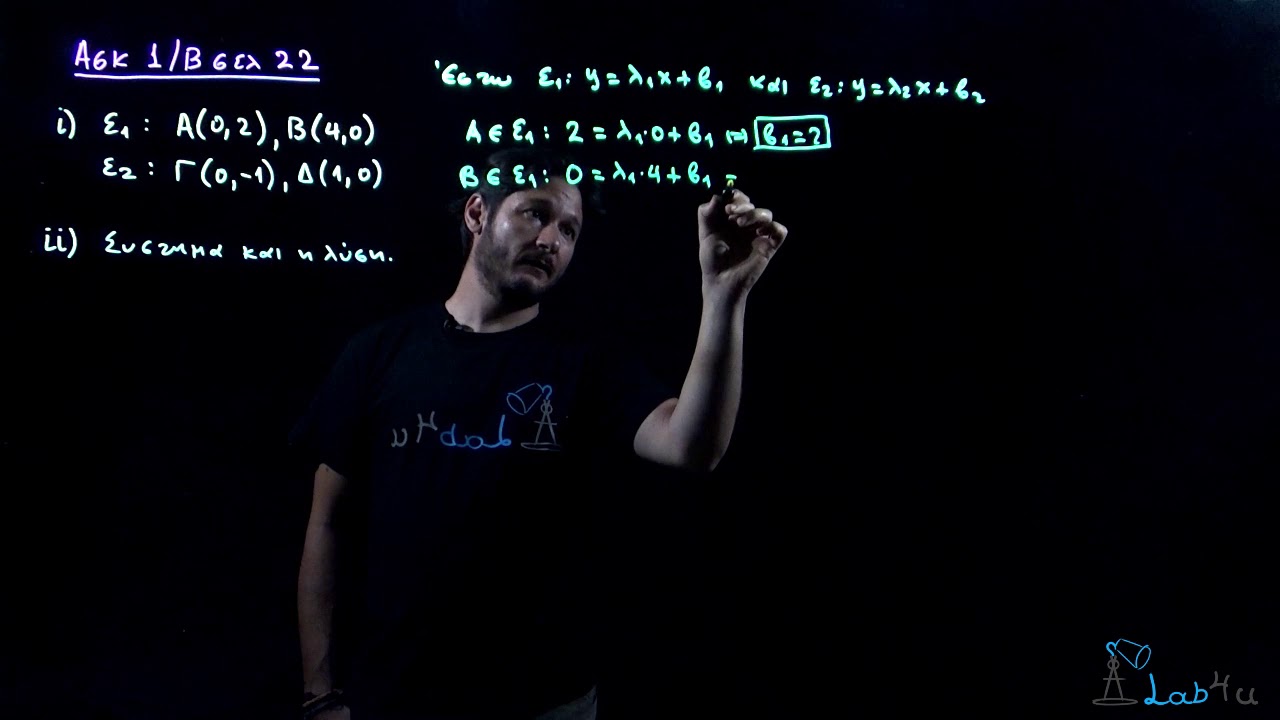 Ασκ 1/Β σελ 22
i) ε₁ : Α(0,2), Β(4,0)
ε₂ : Γ(0,-1), Δ(1,0)
ii) Συστημα και η λύση.
Έστω ε₁: y = λ₁x + β₁ και ε₂: y = λ₂x + β₂
Α ∈ ε₁ : 2 = λ₁·0 + β₁ ⇔ β₁ = 2
Β ∈ ε₁ : 0 = λ₁·4 + β₁ =
Lab4u